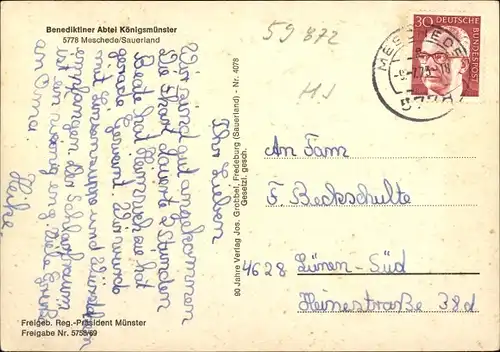 Benediktiner Abtei Königsmünster
5778 Meschede/Sauerland
59 872
HJ
30 DEUTSCHE BUNDESPOST
MESCHEDE
5778
Ihr Lieben
Wir sind gut angekommen
Die Fahrt dauerte 2 Stunden
Heute hat Hammelsie hat
gerade Wir wurde
mit Linsensuppe und Würstchen
empfangen der Schlafraum
ist ein wenig eng Viele Grüße
an Oma.
Heike
90 Jahre Verlag Jos. Grobbel, Fredeburg (Sauerland) - Nr. 4078
Gesetzl. gesch.
An Fam
F. Beckschulte
4628 Lünen-Süd
Heinestraße 38d
Freigeb. Reg.-Präsident Münster
Freigabe Nr. 5755/69